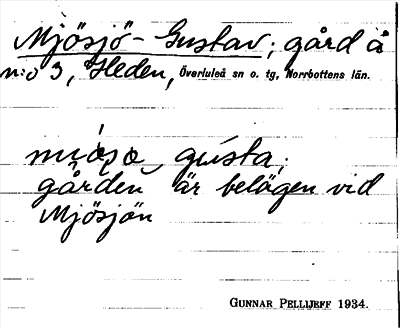 Mjösjö-Gustav; gård å
n:o 3, Heden, Överluleå sn o. tg, Norrbottens län.
gústa;
gården är belägen vid
Mjösjön
GUNNAR PELLIJEFF 1934.